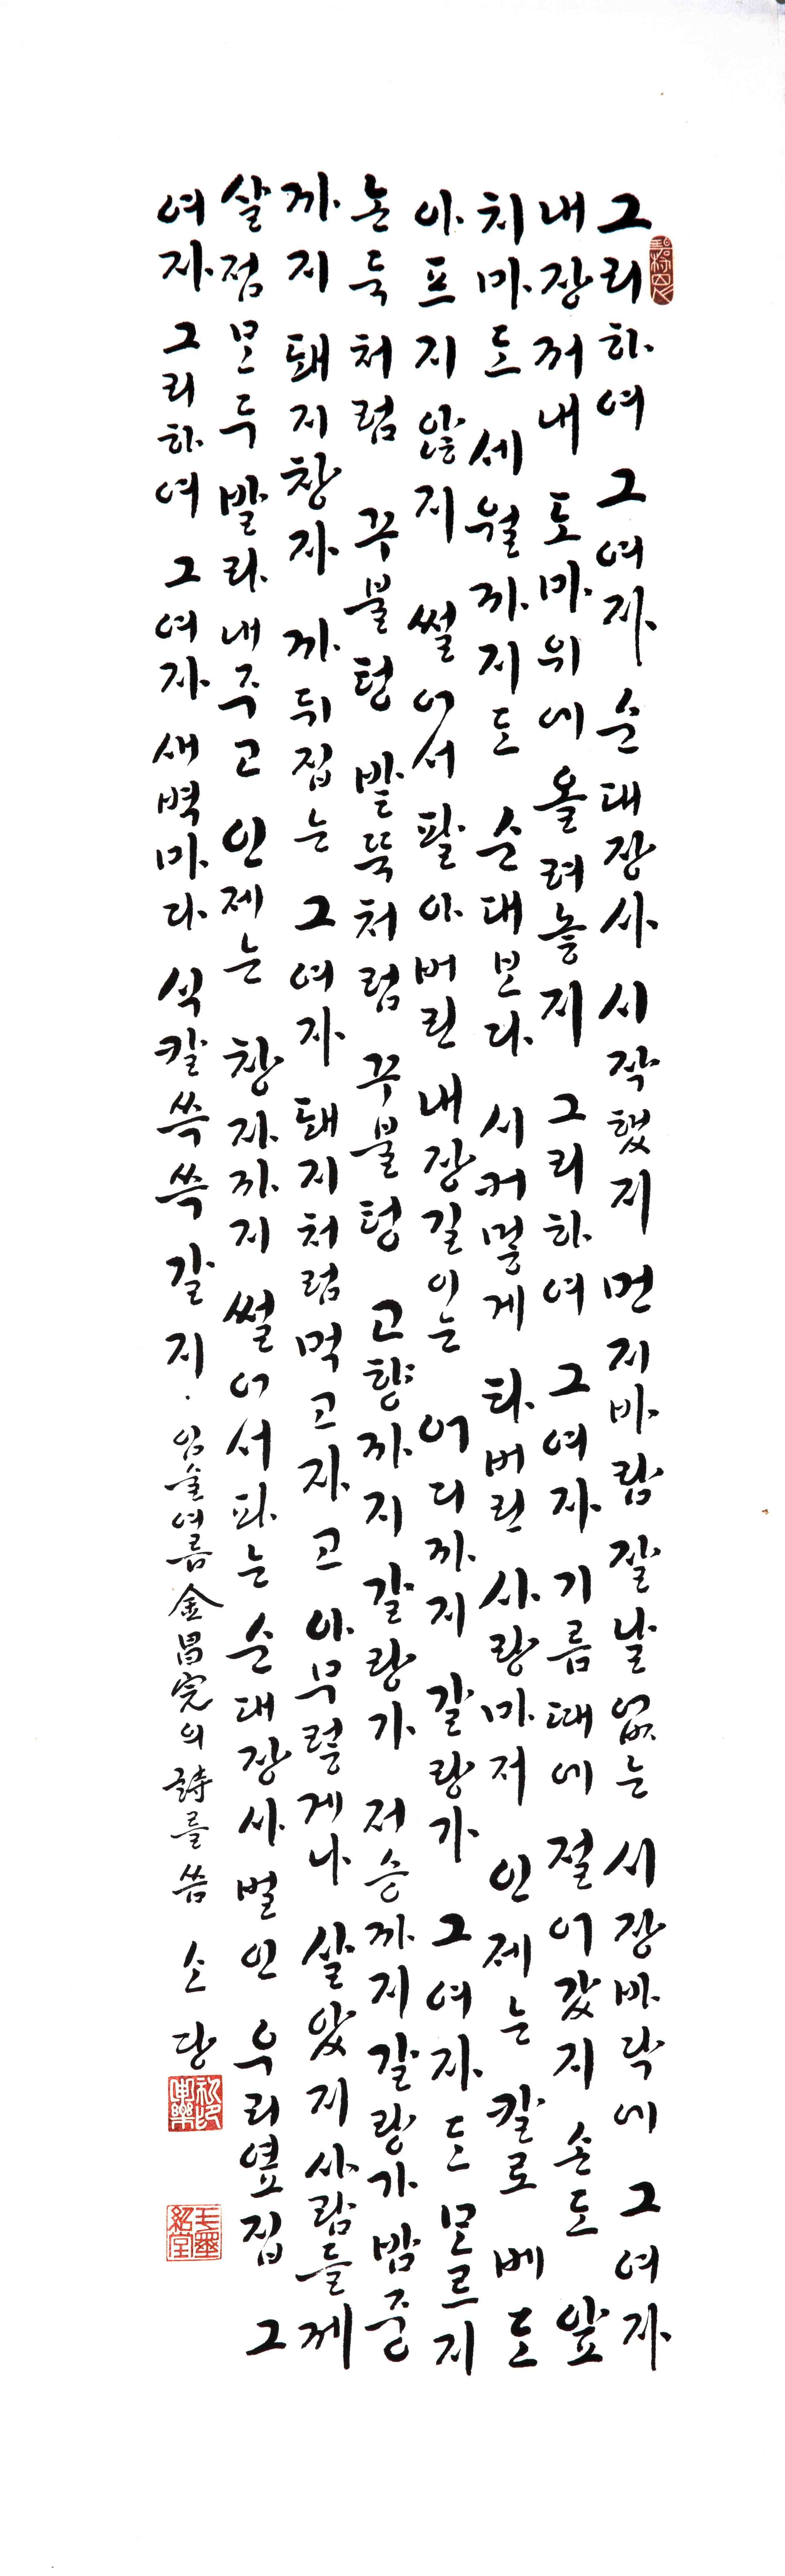 그리하여 그 여자 순대장사 시작했지 먼지바람 잘날 없는 시장바닥에 그 여자
내장 꺼내 도마위에 올려놓지 그리하여 그 여자 기름때에 절어갔지 손도 앞
치마도 세월까지도 순대보다 시커멓게 타버린 사랑마저 인제는 칼로 베도
아프지 않지 썰어서 팔아버린 내장길이는 어디까지 갈랑가 그 여자도 모르지
논둑처럼 꾸불텅 밭뚝처럼 꾸불텅 고향까지 갈랑가 저승까지 갈랑가 밤중
까지 돼지창자 까뒤집는 그 여자 돼지처럼 먹고 자고 아무렇게나 살았지 사람들께
살점 모두 발라내주고 인제는 창자까지 썰어서 파는 순대장사 벌인 우리 옆집 그
여자 그리하여 그 여자 새벽마다 식칼 쓱쓱 갈지.
여름 金昌完의 詩를 씀 소당